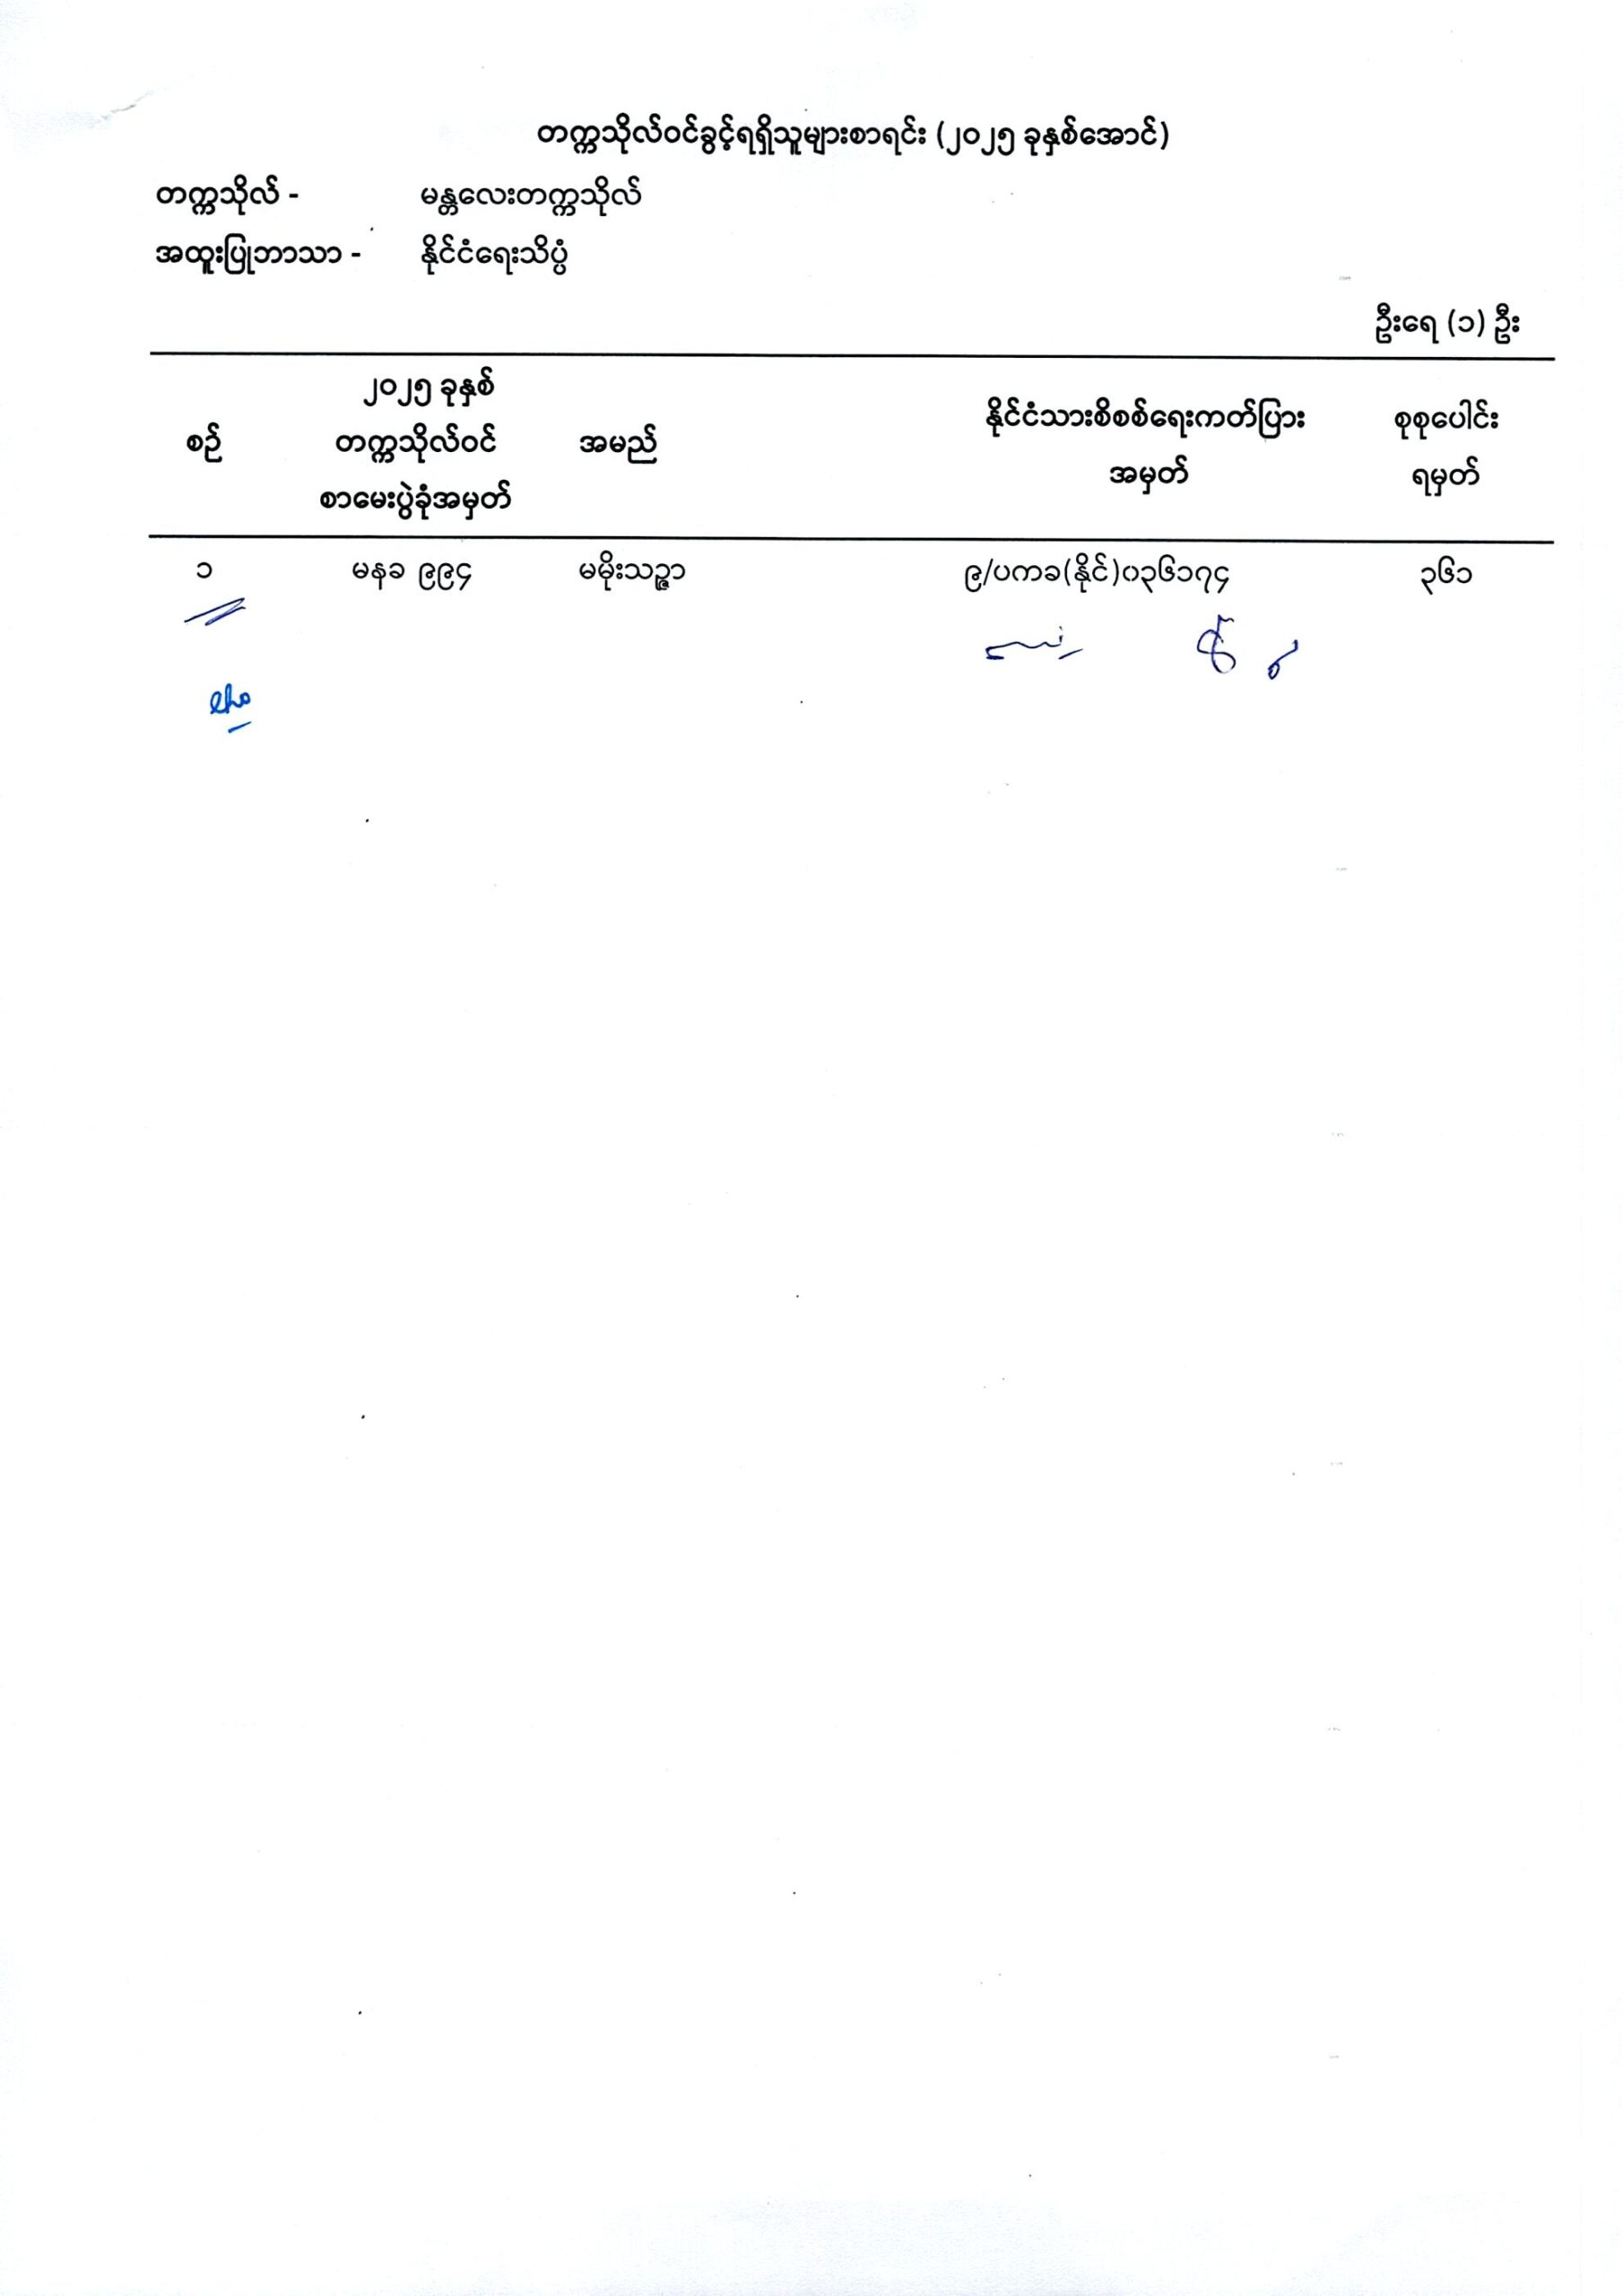 တက္ကသိုလ်ဝင်ခွင့်ရရှိသူများစာရင်း (၂၀၂၅ ခုနှစ်အောင်)
တက္ကသိုလ် - မန္တလေးတက္ကသိုလ်
အထူးပြုဘာသာ - နိုင်ငံရေးသိပ္ပံ
ဦးရေ (၁) ဦး
စဉ် ၂၀၂၅ ခုနှစ် တက္ကသိုလ်ဝင် စာမေးပွဲခုံအမှတ် အမည် နိုင်ငံသားစိစစ်ရေးကတ်ပြား အမှတ် စုစုပေါင်း ရမှတ်
၁ မနခ ၉၉၄ မမိုးသဥ္ဇာ ၉/ပကခ(နိုင်)၀၃၆၁၇၄ ၃၆၁